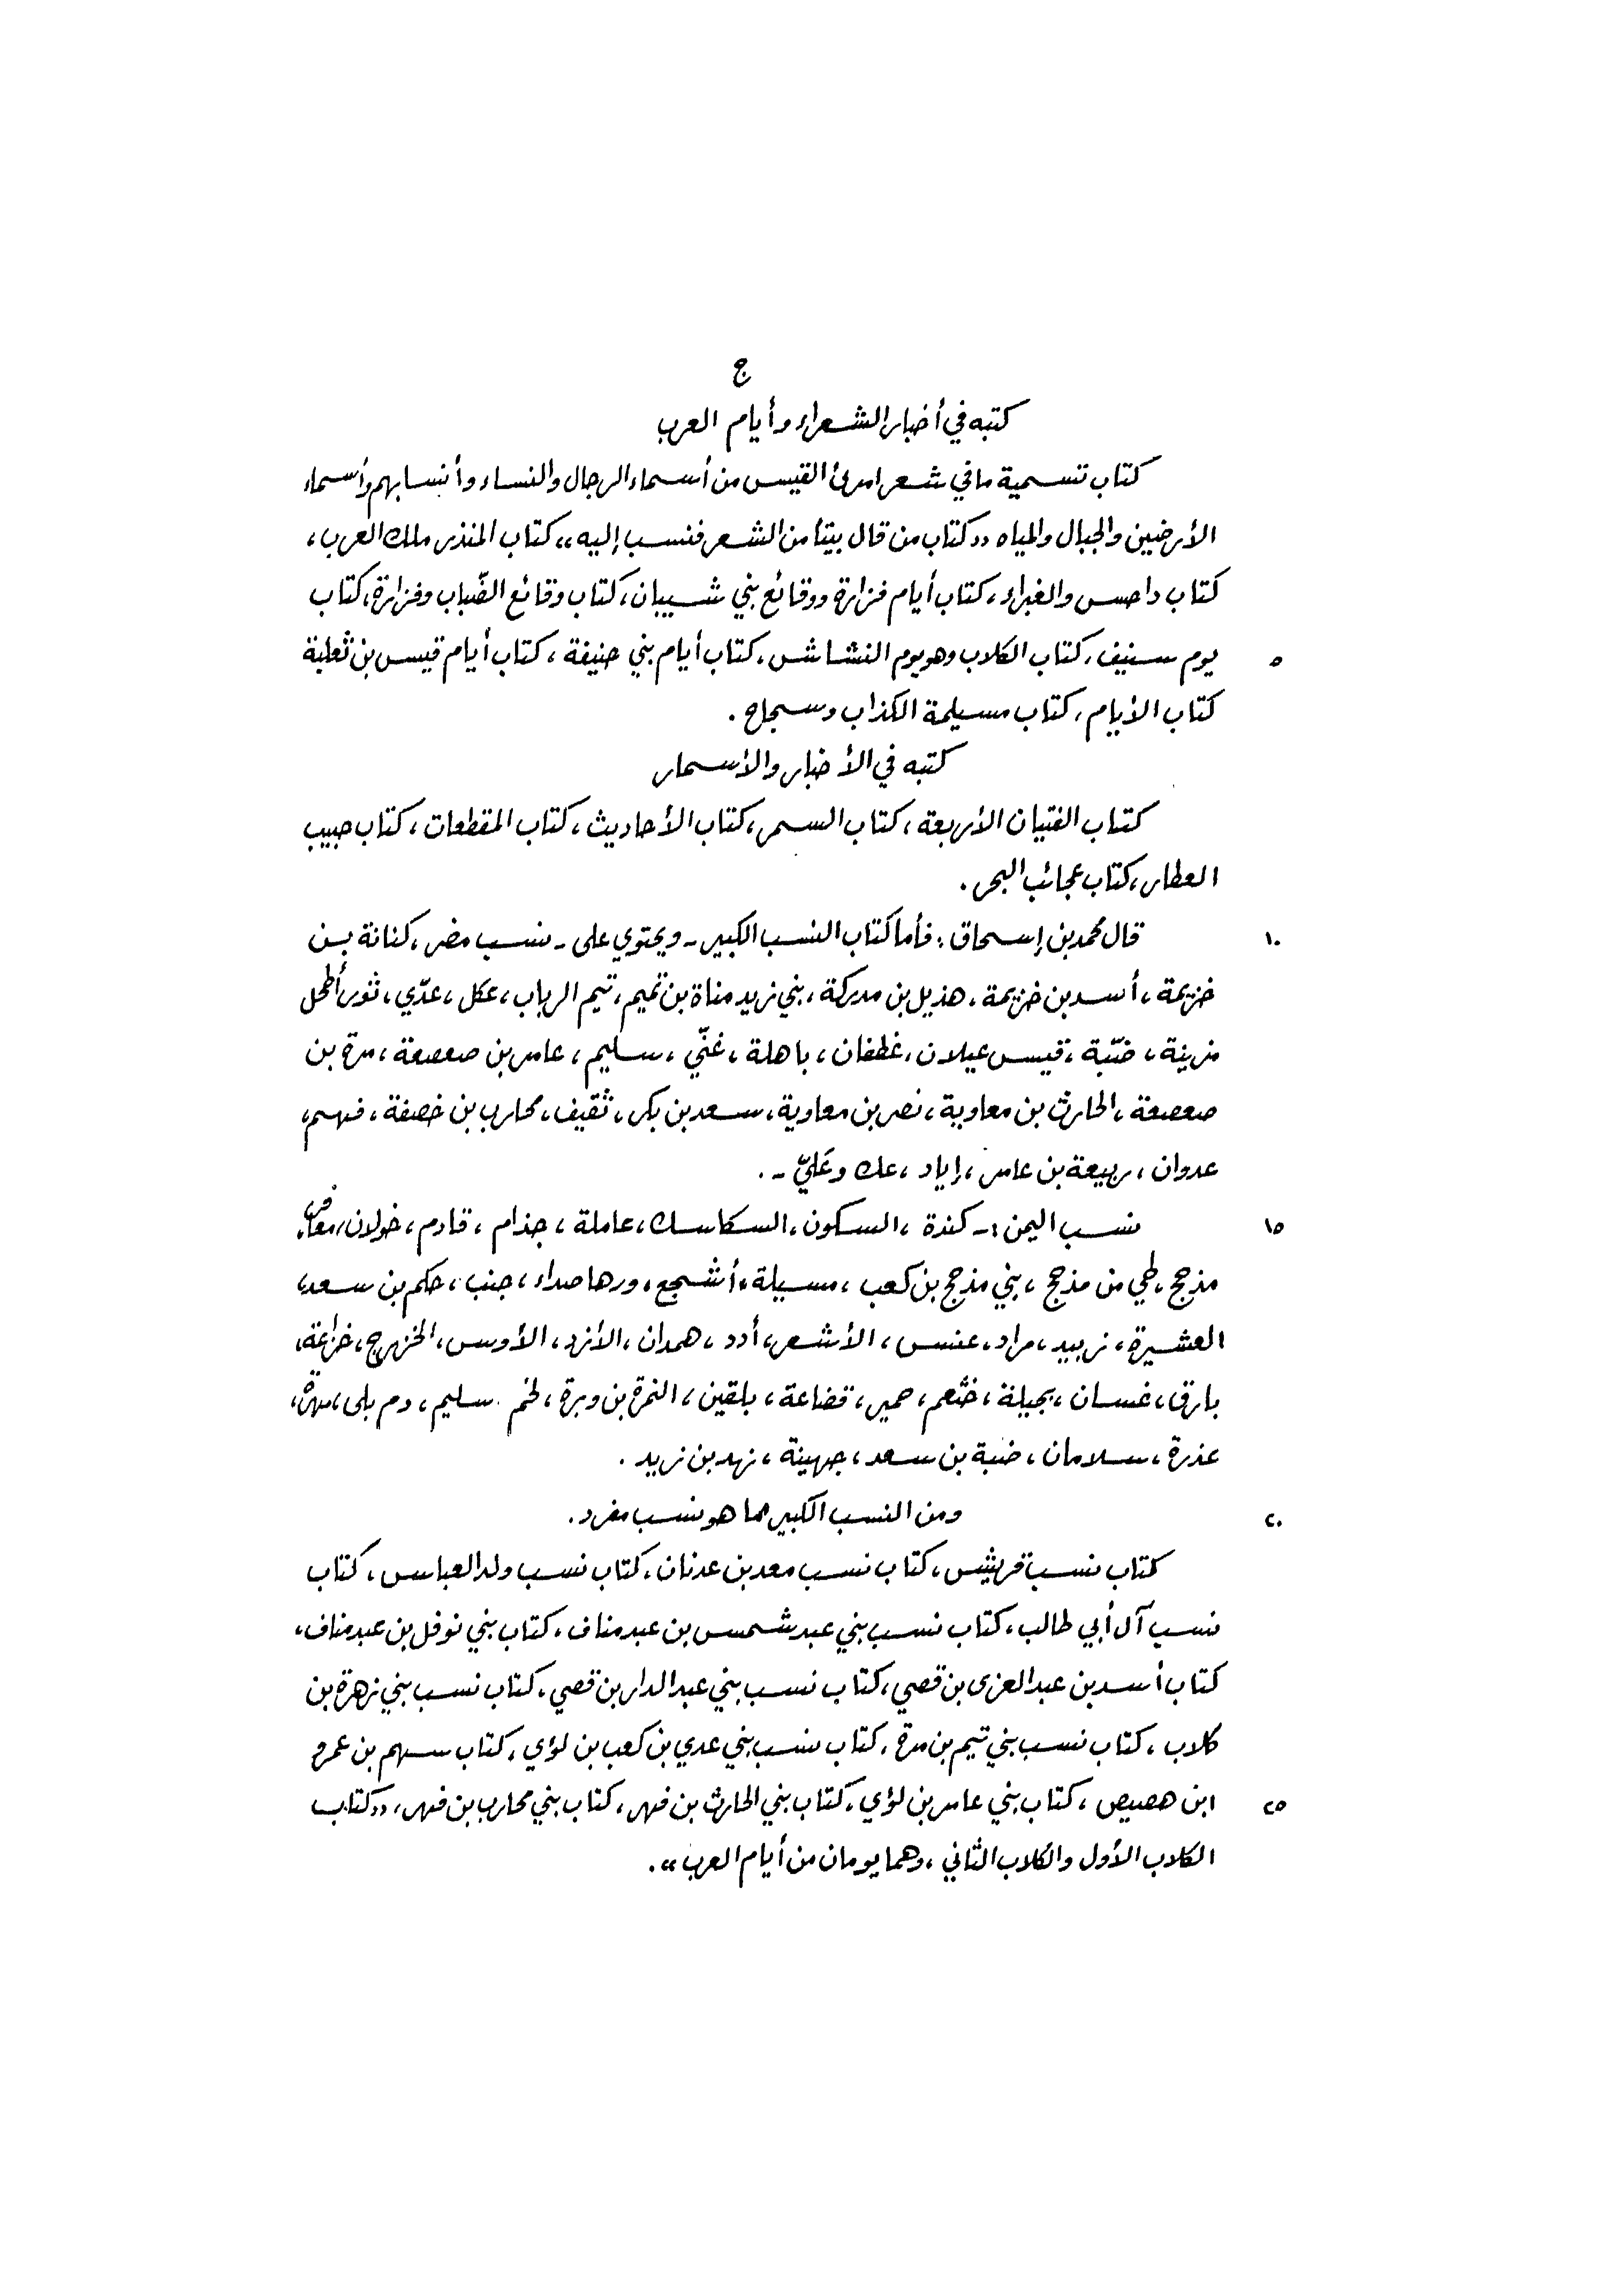 ج
كتبه في أخبار الشعراء وأيام العرب
كتاب تسمية ما في شعر امرئ القيس من أسماء الرجال والنساء وأنسابهم وأسماء
الأرضين والجبال والمياه «كتاب من قال بيتاً من الشعر فنسب إليه» كتاب المنذر ملك العرب،
كتاب داحس والغبراء، كتاب أيام فزارة ووقائع بني شيبان، كتاب وقائع الضّباب وفزارة، كتاب
يوم سنيف، كتاب الكلاب وهو يوم النشاش، كتاب أيام بني حنيفة، كتاب أيام قيس بن ثعلبة ٥
كتاب الأيام، كتاب مسيلمة الكذاب وسجاح.
كتبه في الأخبار والأسمار
كتاب الفتيان الأربعة، كتاب السمر، كتاب الأحاديث، كتاب المقطعات، كتاب حبيب
العطار، كتاب عجائب البحر.
قال محمد بن إسحاق: فأما كتاب النسب الكبير - ويحتوي على - نسب مضر، كنانة بن ١٠
خزيمة، أسد بن خزيمة، هذيل بن مدركة، بني زيد مناة بن تميم، تيم الرباب، عكل، عدّي، ثور أطحل
مزينة، ضبّة، قيس عيلان، غطفان، باهلة، غنّي، سليم، عامر بن صعصعة، مرة بن
صعصعة، الحارث بن معاوية، نصر بن معاوية، سعد بن بكر، ثقيف، محارب بن خصفة، فهم،
عدوان، ربيعة بن عامر، إياد، عك وعَليّ -.
نسب اليمن: - كندة، السكون، السكاسك، عاملة، جذام، قادم، خولان، معافر، ١٥
مذحج، طي من مذحج، بني مذحج بن كعب، مسيلة، أشجع، ورها صداء، جنب، حكم بن سعد،
العشيرة، زبيد، مراد، عنس، الأشعر، أدد، همدان، الأزد، الأوس، الخزرج، خزاعة،
بارق، غسان، بجيلة، خثعم، حمير، قضاعة، بلقين، النمرة بن وبرة، لخم سليم، دم بلى، مهرة،
عذرة، سلامان، ضبة بن سعد، جهينة، نهد بن زيد.
ومن النسب الكبير مما هو نسب مفرد. ٢٠
كتاب نسب قريش، كتاب نسب معد بن عدنان، كتاب نسب ولد العباس، كتاب
نسب آل أبي طالب، كتاب نسب بني عبد شمس بن عبد مناف، كتاب بني نوفل بن عبد مناف،
كتاب أسد بن عبد العزى بن قصي، كتاب نسب بني عبد الدار بن قصي، كتاب نسب بني زهرة بن
كلاب، كتاب نسب بني تيم بن مرة، كتاب نسب بني عدي بن كعب بن لؤي، كتاب سهم بن عمرو
ابن هصيص، كتاب بني عامر بن لؤي، كتاب بني الحارث بن فهر، كتاب بني محارب بن فهر، «كتاب ٢٥
الكلاب الأول والكلاب الثاني، وهما يومان من أيام العرب».